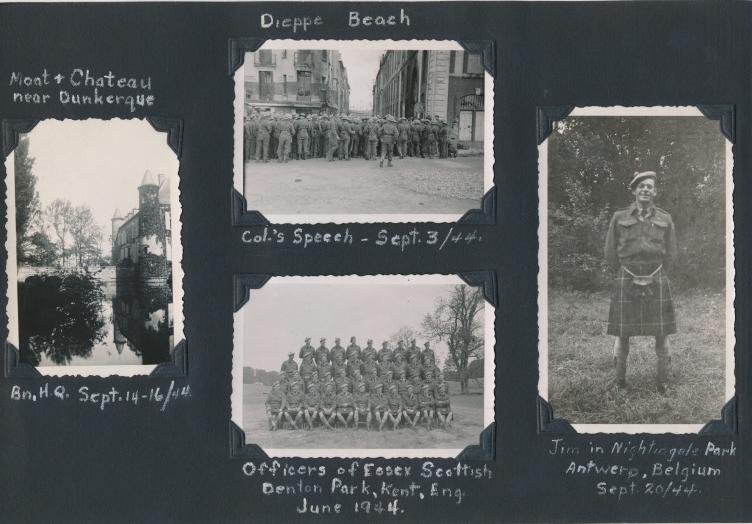 Dieppe Beach
Moat + Chateau
near Dunkerque
Bn. H.Q. Sept. 14-16/44
Col.'s Speech - Sept. 3/44.
Officers of Essex Scottish
Denton Park, Kent, Eng.
June 1944.
Jim in Nightingale Park
Antwerp, Belgium
Sept. 20/44.